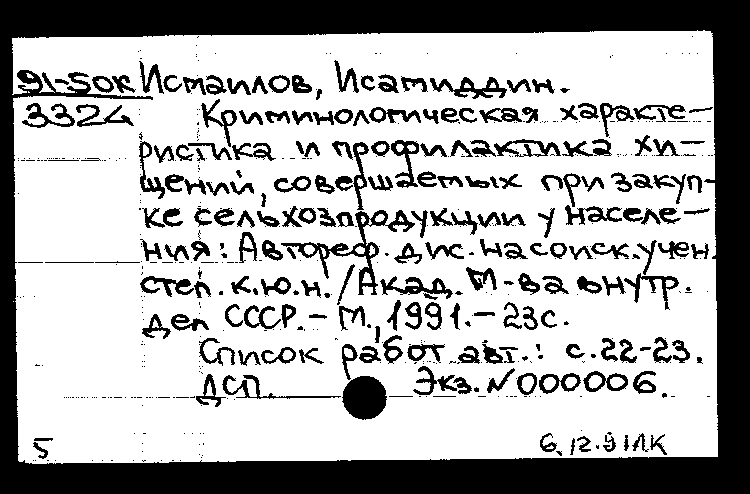 91-50к Исмаилов, Исамиддин.
3324 Криминологическая характе-
ристика и профилактика хи-
щений, совершаемых при закуп-
ке сельхозпродукции у населе-
ния: Автореф. дис. на соиск. учен.
степ. к.ю.н. / Акад. М-ва внутр.
дел СССР. - М., 1991. - 23с.
Список работ авт.: с.22-23.
ДСП. Экз. №000006.
5 6.12.91 ЛК